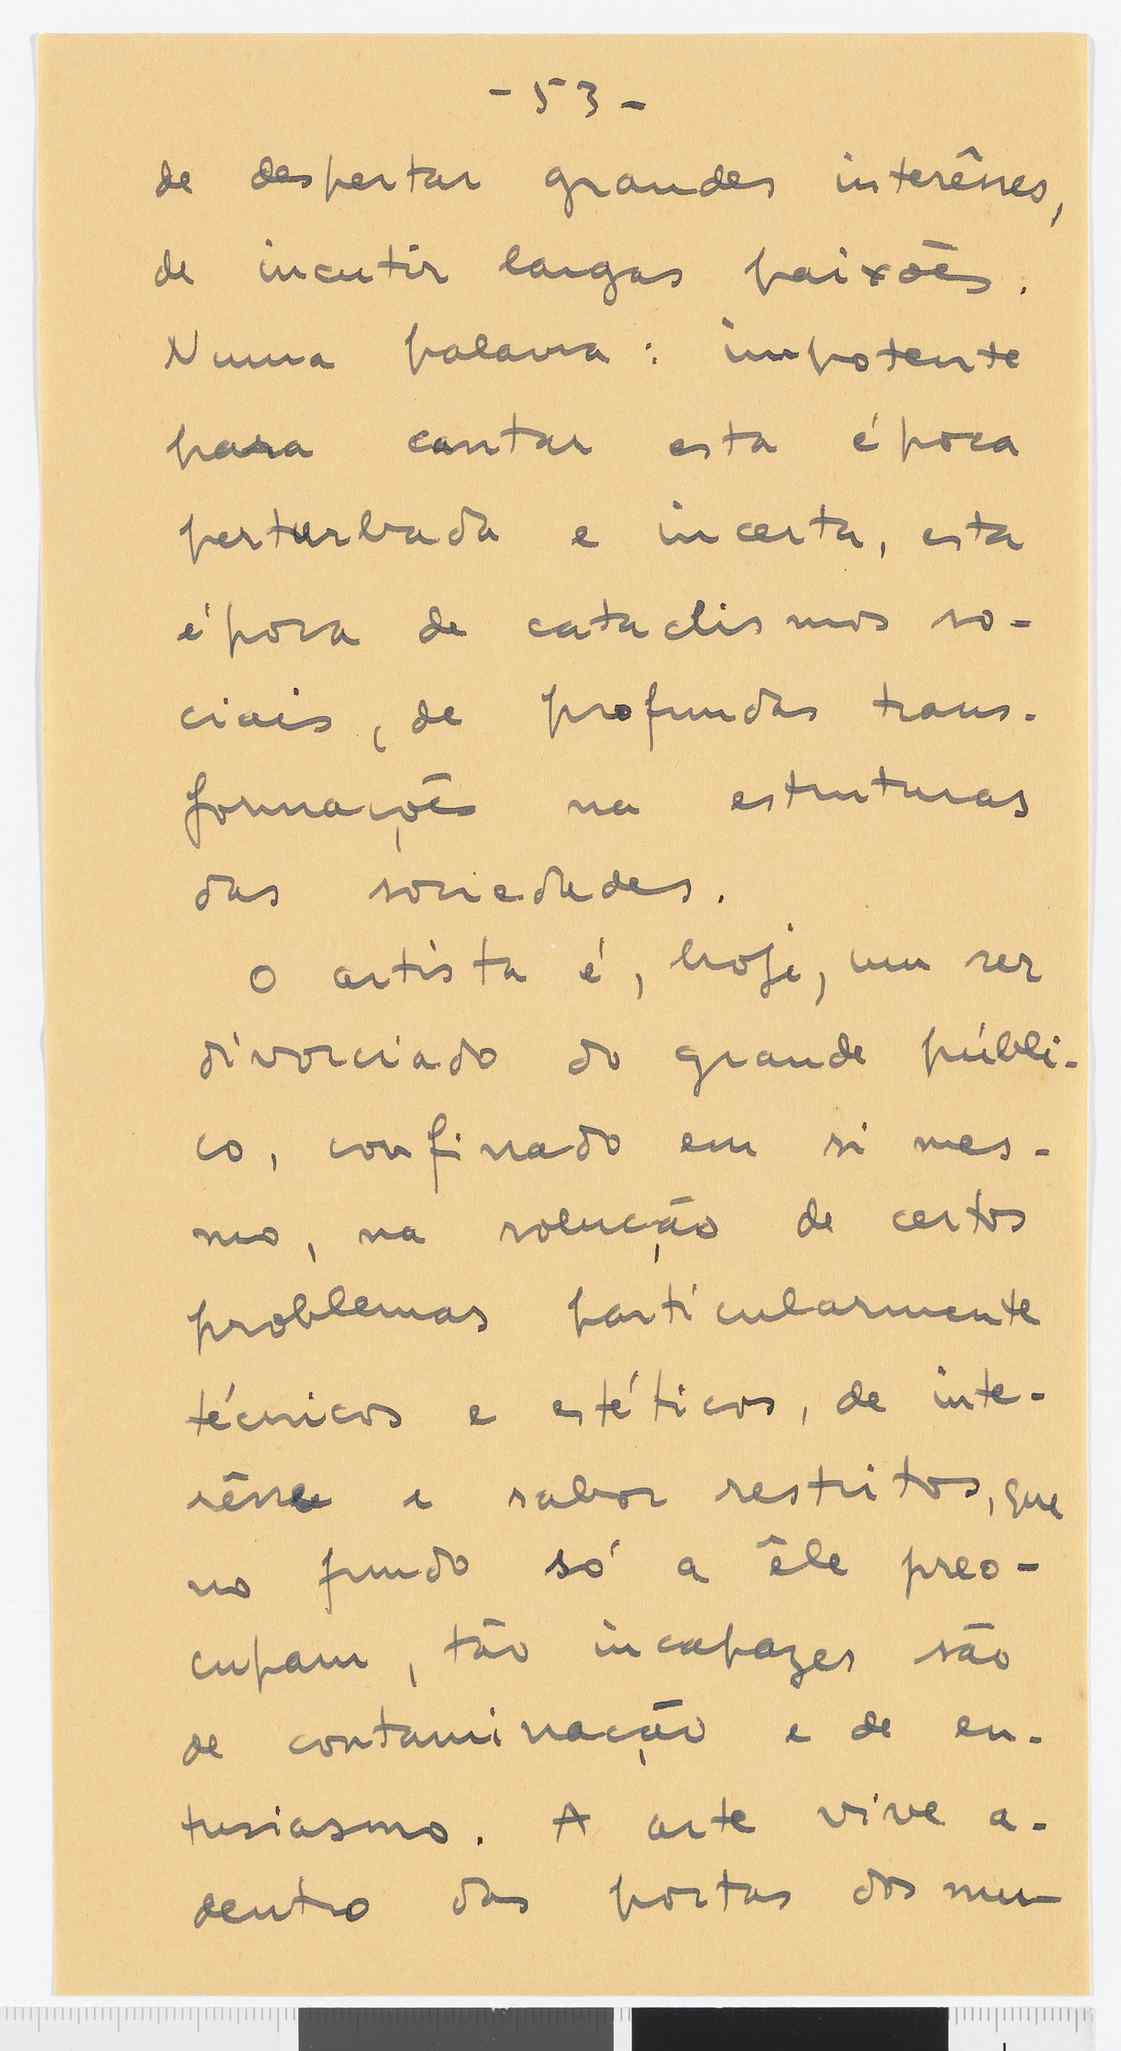 - 53 -
de despertar grandes interêsses,
de incutir largas paixões.
Numa palavra: impotente
para cantar esta época
perturbada e incerta, esta
época de cataclismos so-
ciais, de profundas trans-
formações na estruturas
das sociedades.
O artista é, hoje, um ser
divorciado do grande públi-
co, confinado em si mes-
mo, na solução de certos
problemas particularmente
técnicos e estéticos, de inte-
rêsse e sabor restritos, que
no fundo só a êle preo-
cupam, tão incapazes são
de contaminação e de en-
tusiasmo. A arte vive a-
dentro das portas dos mu-